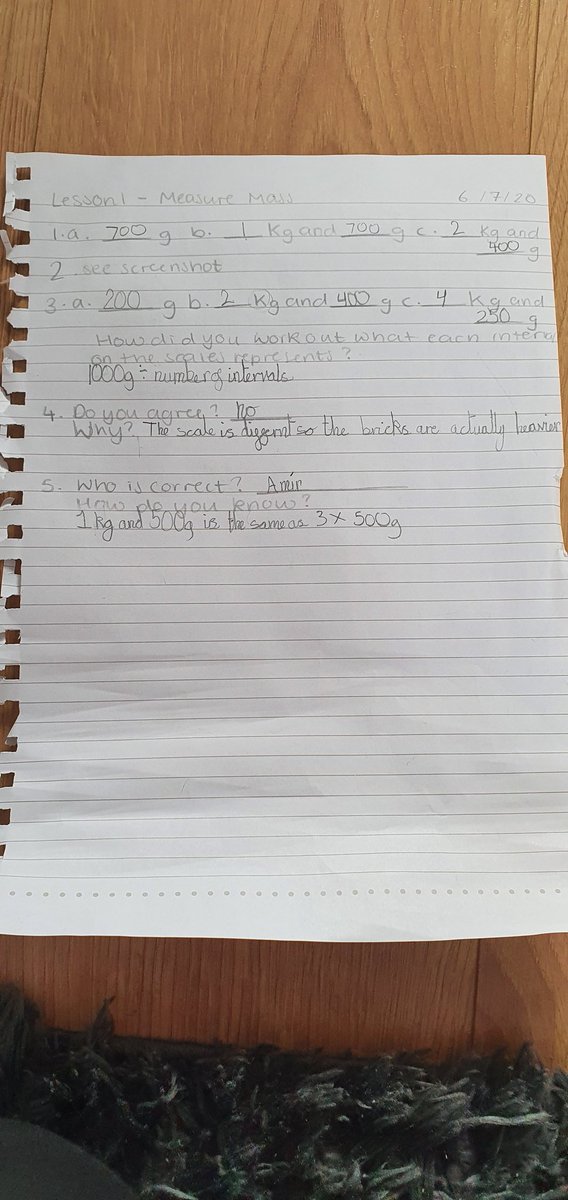 Lesson 1 - Measure Mass 6/7/20
1.a. 700 g b. 1 Kg and 700 g c. 2 Kg and
400 g
2 see screenshot
3.a. 200 g b. 2 Kg and 400 g c. 4 Kg and
250 g
How did you work out what each interv
on the scales represents?
1000g ÷ number of intervals
4. Do you agree? no
Why? The scale is diggernt so the bricks are actually heavier
5. Who is correct? Amir
How do you know?
1 kg and 500g is the same as 3 x 500g